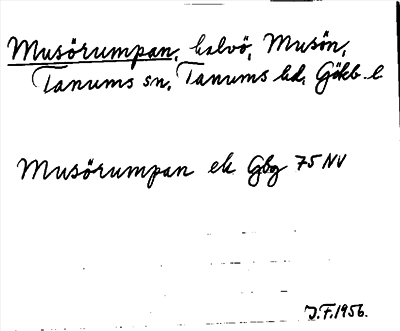 Musörumpan, halvö, Musön,
Tanums sn, Tanums hd, Gökb. l
Musörumpan ek Gbg 75 NV
J.F. 1956.